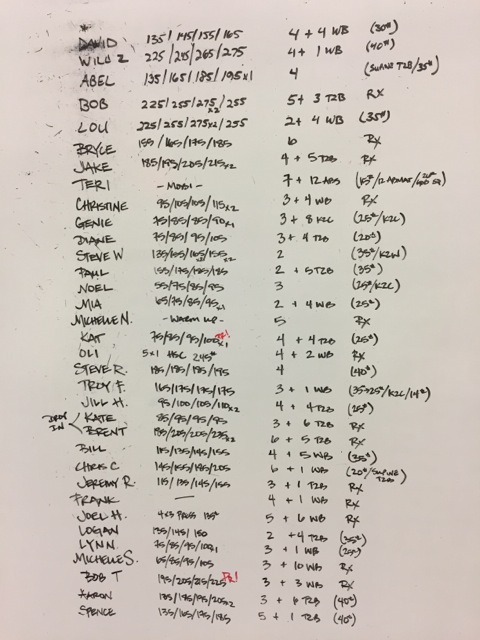 * DAVID 135/145/155/165 4 + 4 WB (30#)
WILD Z 225/245/265/275 4 + 1 WB (40#)
ABEL 135/165/185/195x1 4 (SHANE T2B/35#)
BOB 225/255/275x2/255 5 + 3 T2B RX
LOU 225/255/275x2/255 2 + 4 WB (35#)
BRYCE 155/165/175/185 6 RX
JAKE 185/195/205/215x2 4 + 5 T2B RX
TERI - MOBI - 7 + 12 ABS (15#/12 ABMAT/
CHRISTINE 95/105/105/115x2 3 + 4 WB RX
GENIE 75/85/85/90x1 3 + 8 K2C (25#/K2C)
DIANE 75/85/95/105 3 + 4 T2B (20#)
STEVE W 135/155/165/155x2 2 (35#/K2W)
PAUL 155/175/185/185 2 + 5 T2B (35#)
NOEL 55/75/85/95 3 (25#/K2C)
MIA 65/75/85/95x1 2 + 4 WB (25#)
MICHELLE N. - WARM UP - 5 RX
KAT 75/85/95/100x1 PR! 4 + 4 T2B (25#)
OLI 5x1 HSC 245# 4 + 2 WB RX
STEVE R. 185/185/185/195 4 (40#)
TROY F. 165/175/175/175 3 + 1 WB (35→25#/K2C/14#)
JILL H. 95/100/105/110x2 4 + 4 T2B (25#)
DROP IN KATE 85/95/95/95 3 + 6 T2B RX
BRENT 185/205/205/235x2 6 + 5 T2B RX
BILL 115/135/145/155 4 + 5 WB (35#)
CHRIS C 145/155/185/205 6 + 1 WB (20#/ T2B)
JEREMY R. 115/135/145/155 3 + 1 T2B RX
FRANK — 4 + 1 WB RX
JOEL H. 4x3 PRESS 135# 5 + 6 WB RX
LOGAN 135/145/150 2 + 4 T2B (35#)
LYNN 75/85/95/100x1 3 + 1 WB (25#)
MICHELLE S. 65/85/95/105 3 + 10 WB RX
BOB T 195/205/215/225 PR! 3 + 3 WB RX
AARON 185/185/195/205x2 3 + 6 T2B (40#)
SPENCE 135/165/175/185 5 + 1 T2B (40#)